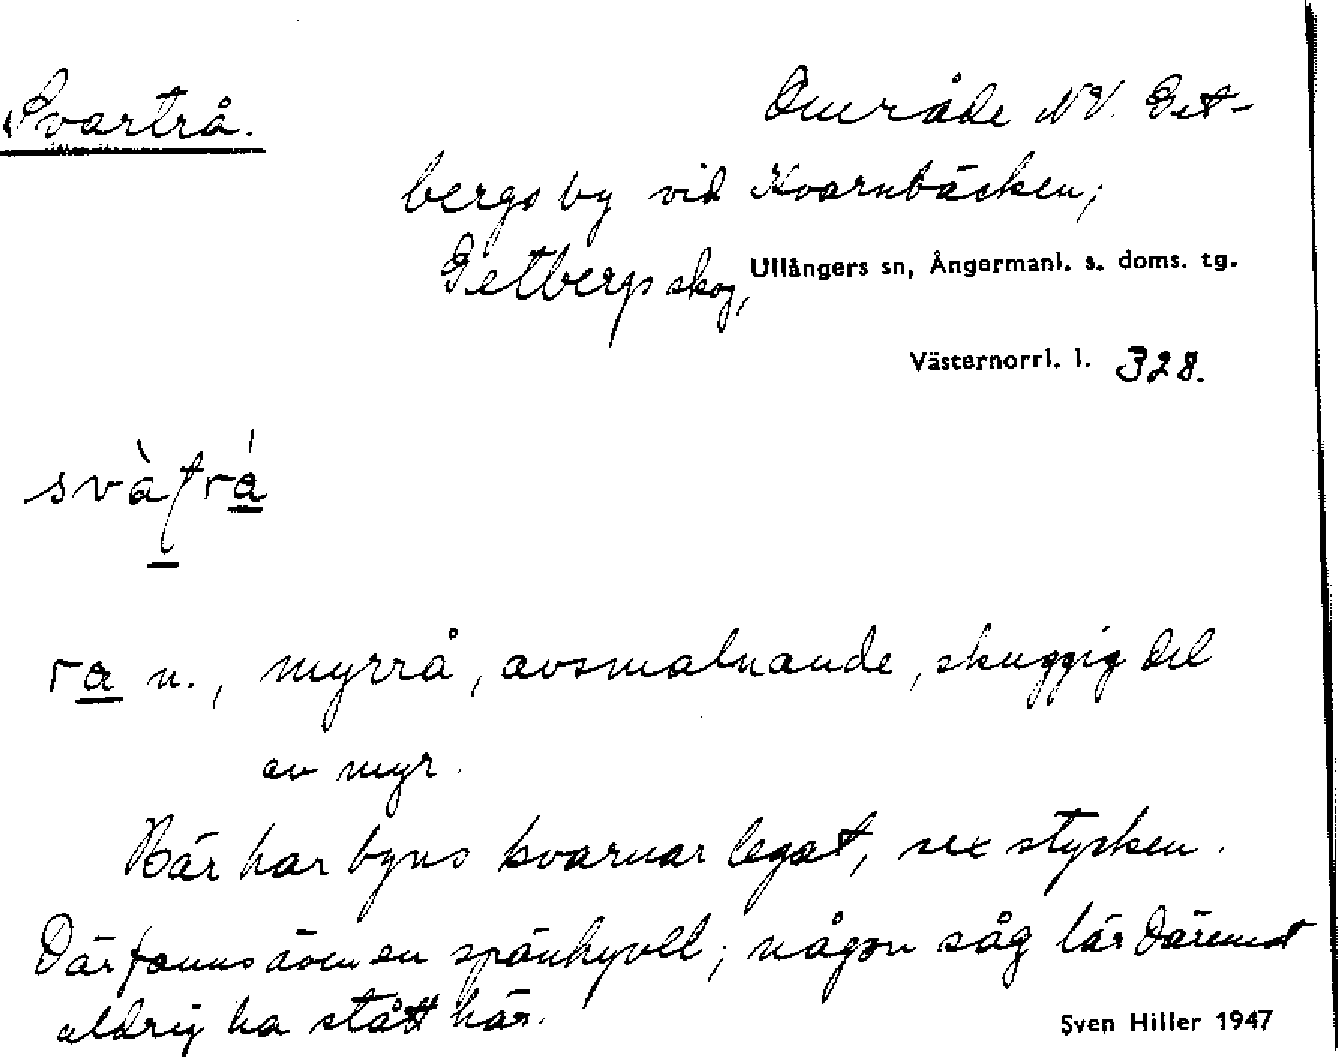 Svartrå. Område NV. Get-
bergs by vid Kvarnbäcken;
Getbergs skog, Ullångers sn, Ångermanl. s. doms. tg.
Västernorrl. l. 328.
ra n., myrrå, avsmalnande, skuggig del
av myr.
Här har byns kvarnar legat, sex stycken.
Där fanns även en spånhyvel; någon såg lär däremot
aldrig ha stått här.
Sven Hiller 1947